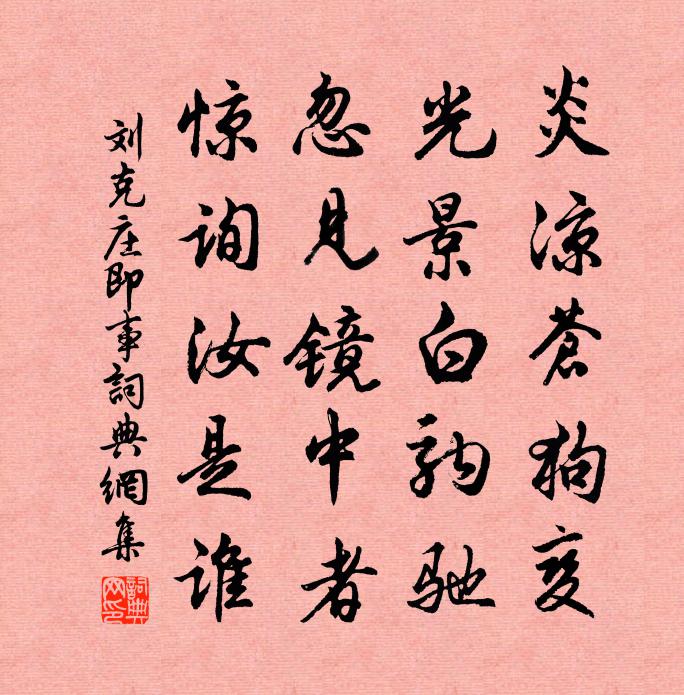 炎凉苍狗变
光景白驹驰
忽见镜中者
惊询汝是谁
刘克庄即事詞典網集
詞典网印